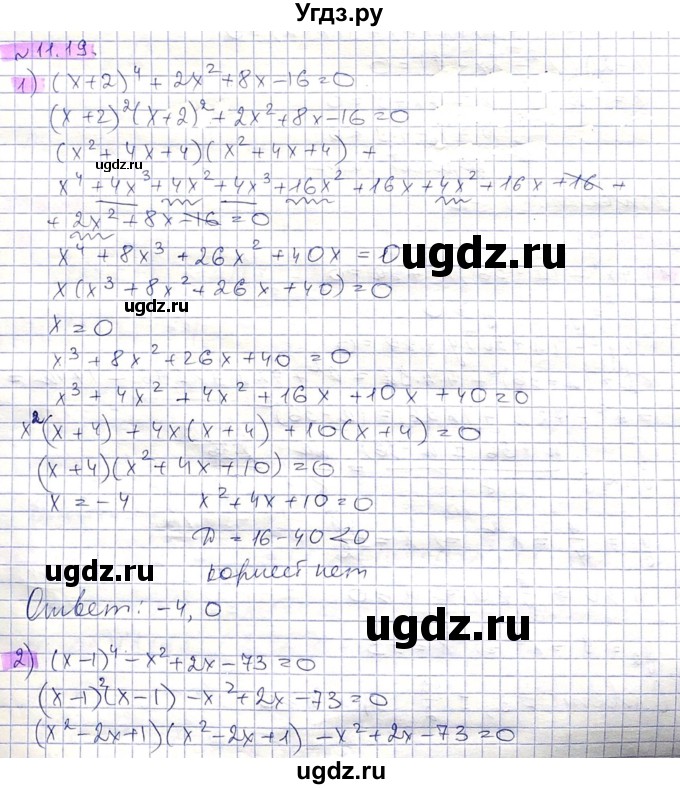 Угдз.ру
№ 11.19.
1) (x+2)⁴ + 2x² + 8x - 16 = 0
(x+2)²(x+2)² + 2x² + 8x - 16 = 0
(x² + 4x + 4)(x² + 4x + 4) +
ugdz.ru
x⁴ + 4x³ + 4x² + 4x³ + 16x² + 16x + 4x² + 16x + 16 +
+ 2x² + 8x - 16 = 0
x⁴ + 8x³ + 26x² + 40x = 0
ugdz.ru
x(x³ + 8x² + 26x + 40) = 0
ugdz.ru
x = 0
x³ + 8x² + 26x + 40 = 0
x³ + 4x² + 4x² + 16x + 10x + 40 = 0
x²(x+4) + 4x(x+4) + 10(x+4) = 0
(x+4)(x² + 4x + 10) = 0
x = -4 x² + 4x + 10 = 0
D = 16 - 40 < 0
ugdz.ru
корней нет
Ответ: -4, 0
ugdz.ru
2) (x-1)⁴ - x² + 2x - 73 = 0
ugdz.ru
(x-1)²(x-1) - x² + 2x - 73 = 0
(x² - 2x + 1)(x² - 2x + 1) - x² + 2x - 73 = 0
ugdz.ru